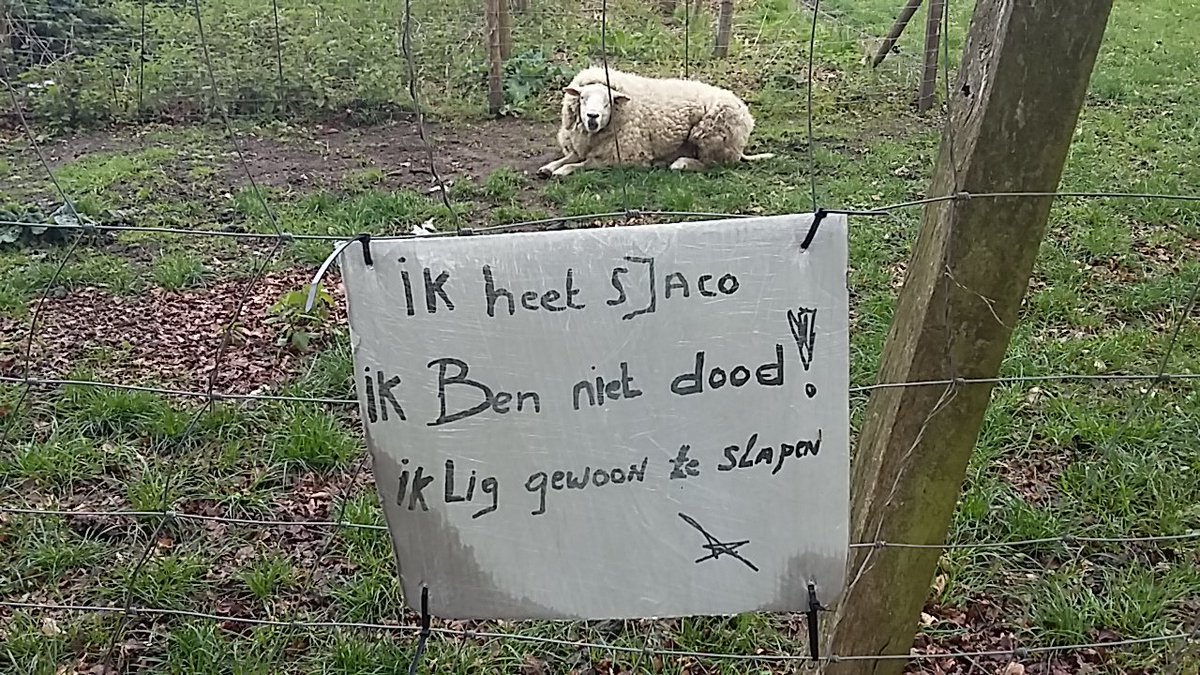 iK heet SJACO
iK Ben niet dood!
iK Lig gewoon te SLAPEN